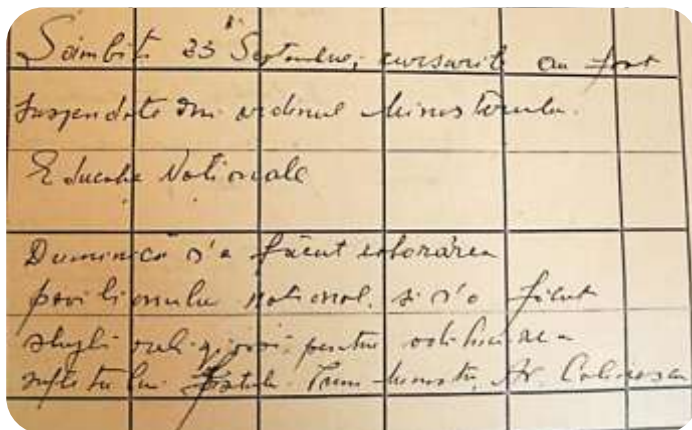 Sâmbătă 23 Septembrie, cursurile au fost
suspendate din ordinul Ministerului
Educației Naționale
Duminică s'a făcut arborarea
pavilionului național, și s'a făcut
slujbă religioasă pentru odihnirea
sufletului fostului Prim-Ministru, Ar. Călinescu